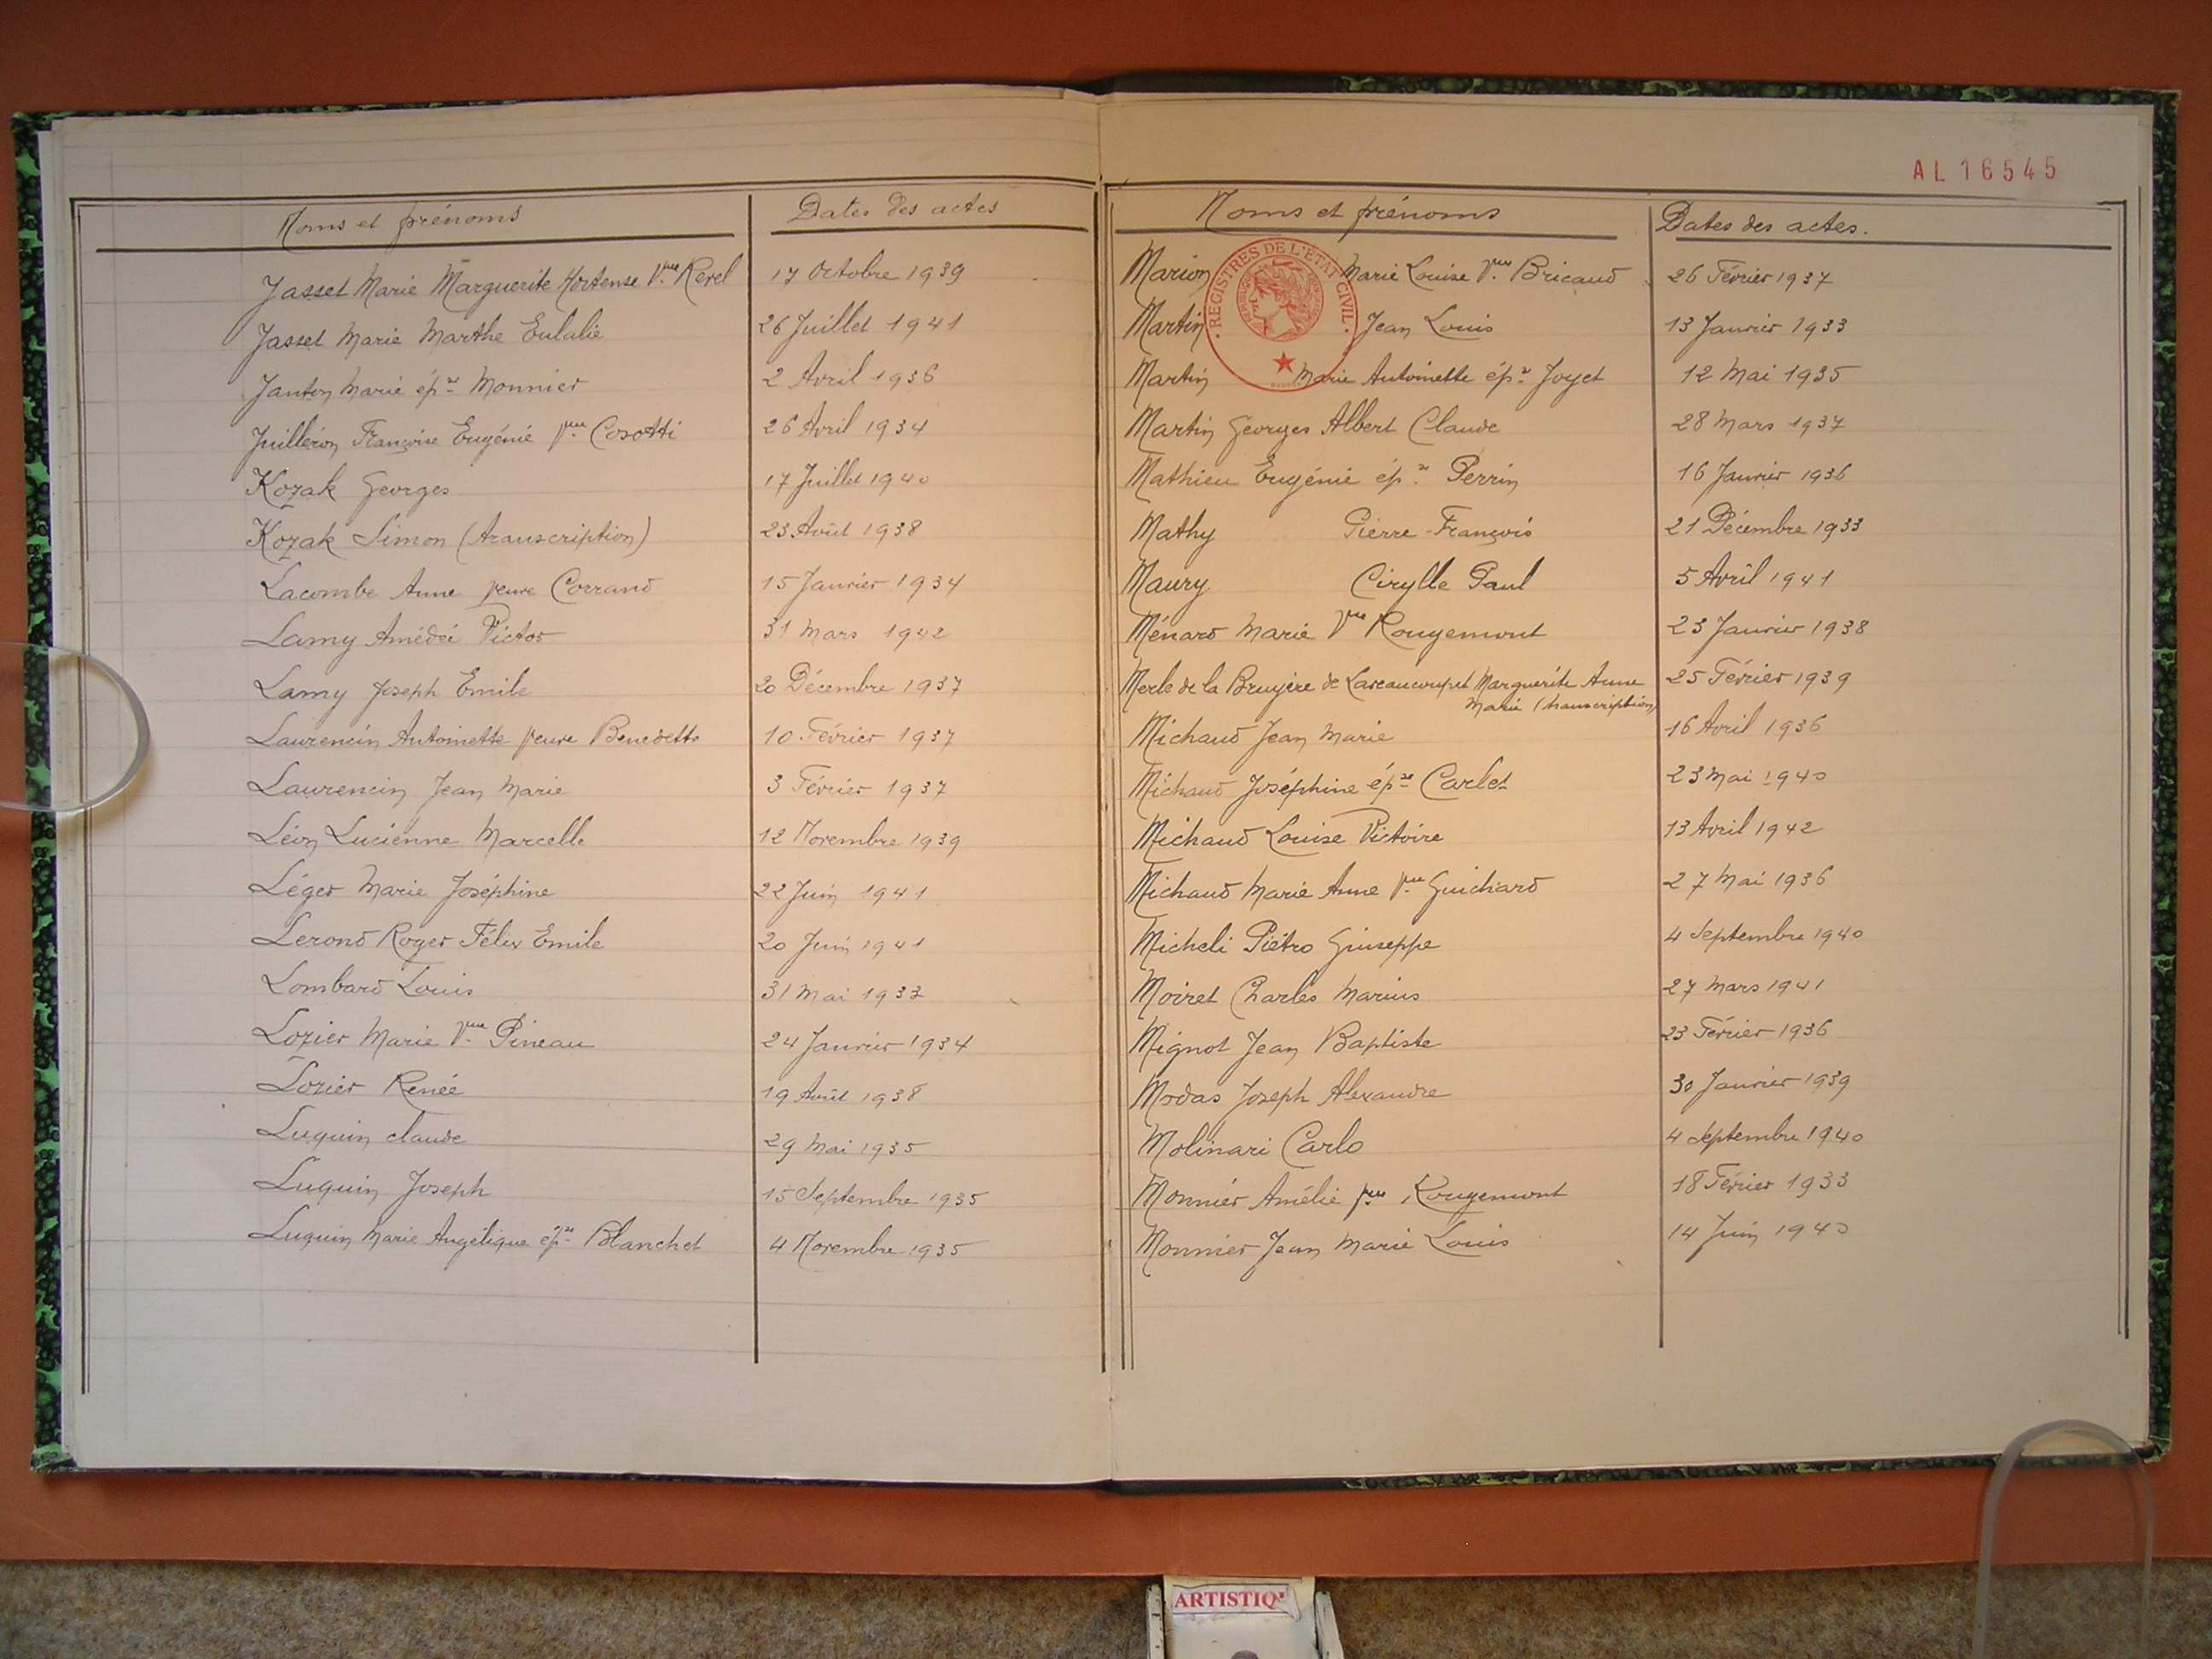 AL 16545
Noms et prénoms
Dates des actes
Jasset Marie Marguerite Hortense Vve Revel 17 Octobre 1939
Jasset Marie Marthe Eulalie 26 Juillet 1941
Janton Marie épse Monnier 2 Avril 1936
Juilleron Françoise Eugénie Vve Cosotti 26 Avril 1934
Kozak Georges 17 Juillet 1940
Kozak Simon (transcription) 23 Août 1938
Lacombe Anne veuve Corrand 15 Janvier 1934
Lamy Amédée Victor 31 Mars 1942
Lamy Joseph Emile 20 Décembre 1937
Laurencin Antoinette veuve Benedetto 10 Février 1937
Laurencin Jean Marie 3 Février 1937
Léon Lucienne Marcelle 12 Novembre 1939
Léger Marie Joséphine 22 Juin 1941
Lerond Roger Félix Emile 20 Juin 1941
Lombard Louis 31 Mai 1937
Lozier Marie Vve Pineau 24 Janvier 1934
Lozier Renée 19 Août 1938
Luquin Claude 29 Mai 1935
Luquin Joseph 15 Septembre 1935
Luquin Marie Angélique épse Blanchet 4 Novembre 1935
Noms et prénoms
Dates des actes.
REGISTRES DE L'ÉTAT CIVIL
Marion Marie Louise Vve Bricaud 26 Février 1937
Martin Jean Louis 13 Janvier 1933
Martin Marie Antoinette épse Joyet 12 Mai 1935
Martin Georges Albert Claude 28 Mars 1937
Mathieu Eugénie épse Perrin 16 Janvier 1936
Mathy Pierre-François 21 Décembre 1933
Maury Cirylle Paul 5 Avril 1941
Ménard Marie Vve Rougemont 23 Janvier 1938
Merle de la Bruyère de Marguerite Anne 25 Février 1939
Marie (transcription)
Michaud Jean Marie 16 Avril 1936
Michaud Joséphine épse Carlet 23 Mai 1940
Michaud Louise Victoire 13 Avril 1942
Michaud Marie Anne Vve Guichard 27 Mai 1936
Micheli Piétro Giuseppe 4 Septembre 1940
Moiret Charles Marius 27 Mars 1941
Mignot Jean Baptiste 23 Février 1936
Modas Joseph Alexandre 30 Janvier 1939
Molinari Carlo 4 Septembre 1940
Monnier Amélie Vve Rougemont 18 Février 1933
Monnier Jean Marie Louis 14 Juin 1940
ARTISTIQ